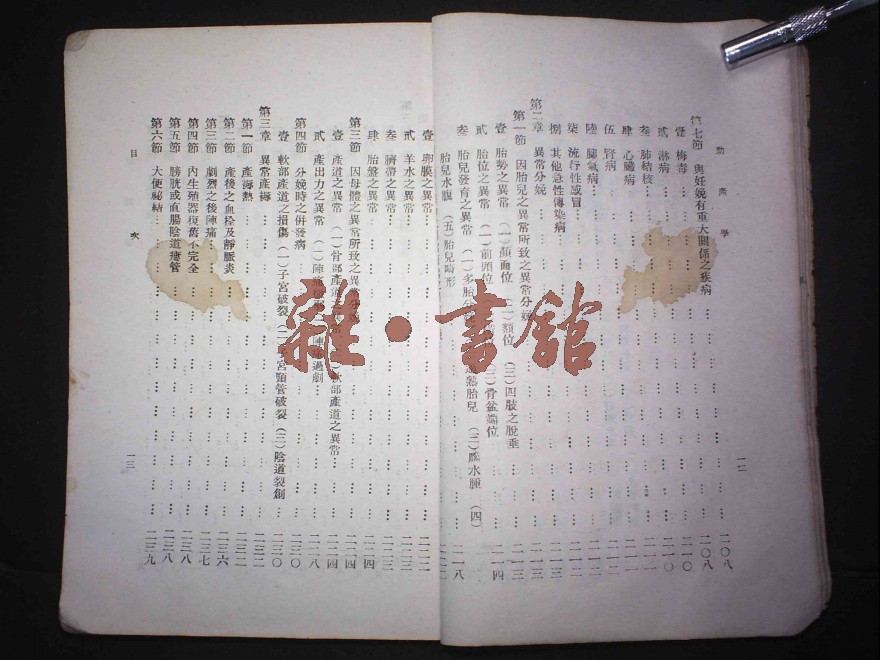 助產學
第七節 與妊娠有重大關係之疾病 二〇八
壹 梅毒 二〇八
貳 淋病 二一〇
叁 肺結核 二一〇
肆 心臟病 二一一
伍 腎病 二一一
陸 脚氣病 二一二
柒 流行性感冒 二一二
捌 其他急性傳染病 二一二
第二章 異常分娩 二一三
第一節 因胎兒之異常所致之異常分娩 二一三
壹 胎勢之異常 (一)顏面位 (二)額位 (三)四肢之脫垂
貳 胎位之異常 (一)前頭位 (三)骨盆端位 二一四
叁 胎兒發育之異常 (一)多胎分 胎兒 (三)腦水腫 (四)
胎兒水腹 (五)胎兒畸形 二一八
一二
壹 卵膜之異常 二二二
貳 羊水之異常 二二三
叁 臍帶之異常 二二三
肆 胎盤之異常 二二四
第三節 因母體之異常所致之異常分娩 二二四
壹 產道之異常 (一)骨部產道之異常 軟部產道之異常 二二四
貳 產出力之異常 (一)陣痛 陣痛過劇 二二八
第四節 分娩時之併發病 二三〇
壹 軟部產道之損傷 (一)子宮破裂 (二)子宮頸管破裂 (三)陰道裂創 二三〇
第三章 異常產褥 二三二
第一節 產褥熱 二三二
第二節 產後之血栓及靜脈炎 二三六
第三節 劇烈之後陣痛 二三七
第四節 內生殖器復舊不完全 二三八
第五節 膀胱或直腸陰道瘻管 二三八
第六節 大便祕結 二三九
目次
一三
雜·書館